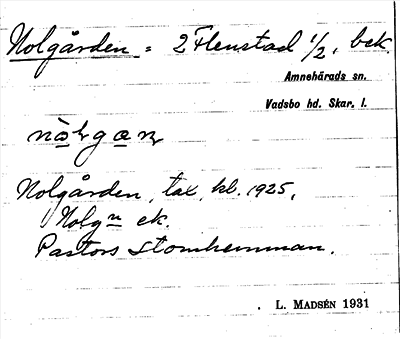 Nolgården = 2 Flenstad 1/2, bek.
Amnehärads sn.
Vadsbo hd. Skar. l.
Nolgården, tax, kl. 1925,
Nolgn ek.
Pastors stomhemman.
. L. MADSÉN 1931